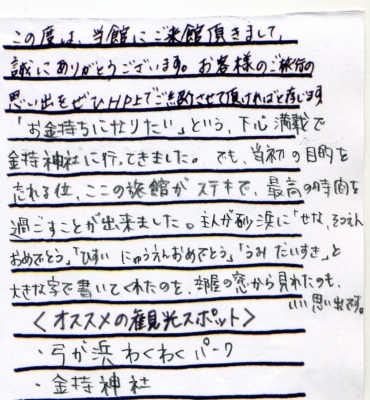 この度は、当館にご来館頂きまして、
誠にありがとうございます。お客様のご旅行の
思い出をぜひHP上でご紹介させて頂ければと存じます
「お金持ちになりたい」という、下心満載で
金持神社に行ってきました。でも、当初の目的を
忘れる位、ここの旅館がステキで、最高の時間を
過ごすことが出来ました。主人が砂浜に「せな、そつえん
おめでとう」「ひすい にゅうえんおめでとう」「うみ だいすき」と
大きな字で書いてくれたのを、部屋の窓から見れたのも、
いい思い出です。
＜オススメの観光スポット＞
・弓が浜わくわくパーク
・金持神社